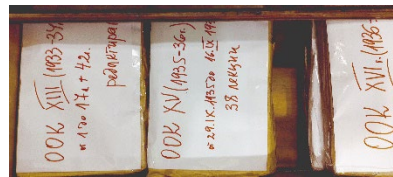 ООК XIII (1933-34
от 1 до 17л + 42.
редактиран
ООК XV (1935-36г.)
от 29.IX.1935 до 16.IX.193
38 лекции
ООК XVI. (1936-